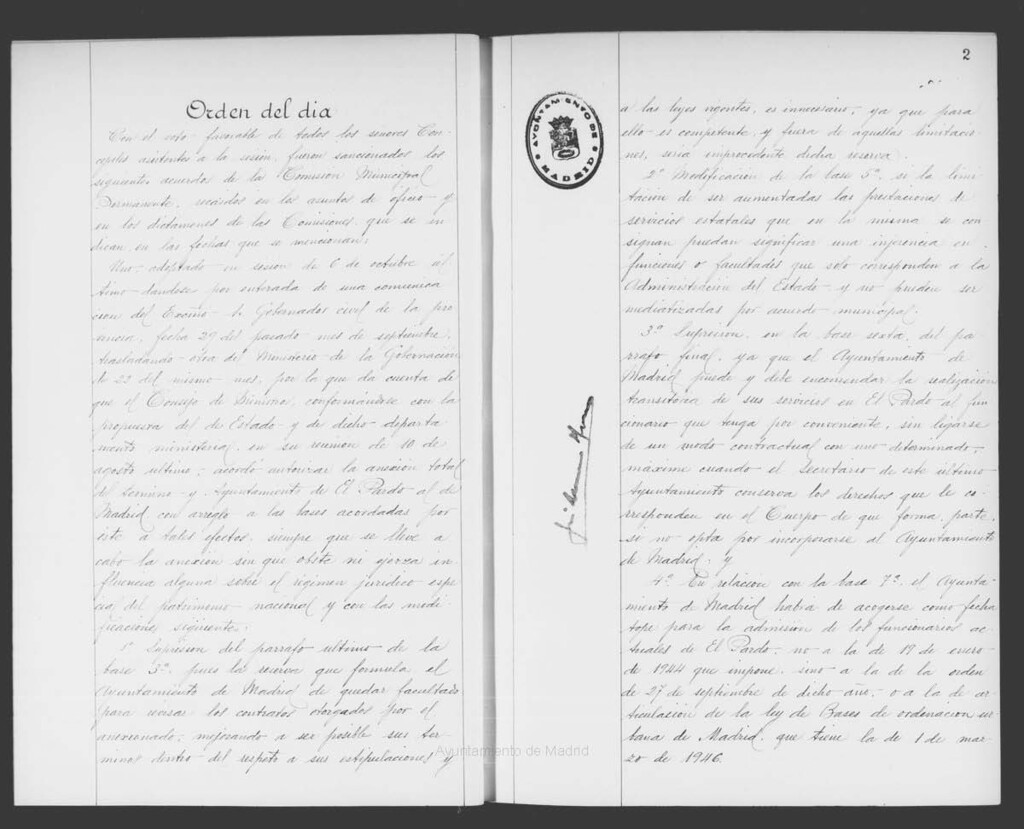 Orden del dia
Con el voto favorable de todos los señores Con-
cejales asistentes a la sesión, fueron sancionados los
siguientes acuerdos de la Comisión Municipal
Permanente, recaidos en los asuntos de oficio y
en los dictamenes de las Comisiones, que se in-
dican, en las fechas que se mencionan:
Uno: adoptado en sesión de 6 de octubre úl-
timo dandose por enterada de una comunica
cion del Excmo. Sr. Gobernador civil de la pro-
vincia, fecha 29 del pasado mes de septiembre,
trasladando otra del Ministerio de la Gobernacion
de 22 del mismo mes, por la que da cuenta de
que el Consejo de Ministros, conformándose con la
propuesta del de Estado y de dicho departa
mento ministerial, en su reunion de 10 de
agosto último, acordó autorizar la anexión total
del termino y Ayuntamiento de El Pardo al de
Madrid con arreglo a las bases acordadas por
este a tales efectos, siempre que se lleve a
cabo la anexión sin que obste ni ejerza in-
fluencia alguna sobre el régimen juridico espe
cial del patrimonio nacional y con las modi-
ficaciones siguientes:
1º Supresion del parrafo ultimo de la
base 3ª, pues la reserva que formula el
Ayuntamiento de Madrid de quedar facultado
para revisar los contratos otorgados por el
anexionado, mejorando a ser posible sus ter-
minos dentro del respeto a sus estipulaciones y
Ayuntamiento de Madrid
AYUNTAMIENTO DE MADRID
2
a las leyes vigentes, es innecesario, ya que para
ello es competente, y fuera de aquellas limitacio-
nes, sería improcedente dicha reserva.
2º Modificacion de la base 5ª, si la limi-
tacion de ser aumentadas las prestaciones de
servicios estatales que en la misma se con
signan puedan significar una injerencia en
funciones o facultades que solo corresponden a la
Administracion del Estado y no pueden ser
mediatizadas por acuerdo municipal.
3º Supresion, en la base sexta, del pa-
rrafo final, ya que el Ayuntamiento de
Madrid puede y debe encomendar la realización
transitoria de sus servicios en El Pardo al fun
cionario que tenga por conveniente, sin ligarse
de un modo contractual con uno determinado,
maxime cuando el Secretario de este ultimo
Ayuntamiento conserva los derechos que le co-
rresponden en el Cuerpo de que forma parte,
si no opta por incorporarse al Ayuntamiento
de Madrid, y
4º En relación con la base 7ª, el Ayunta-
miento de Madrid habia de acogerse como fecha
tope para la admision de los funcionarios ac-
tuales de El Pardo, no a la de 19 de enero
de 1944 que impone, sino a la de la orden
de 27 de septiembre de dicho año, o a la de ar-
ticulación de la ley de Bases de ordenacion ur
bana de Madrid, que tiene la de 1 de mar-
zo de 1946.